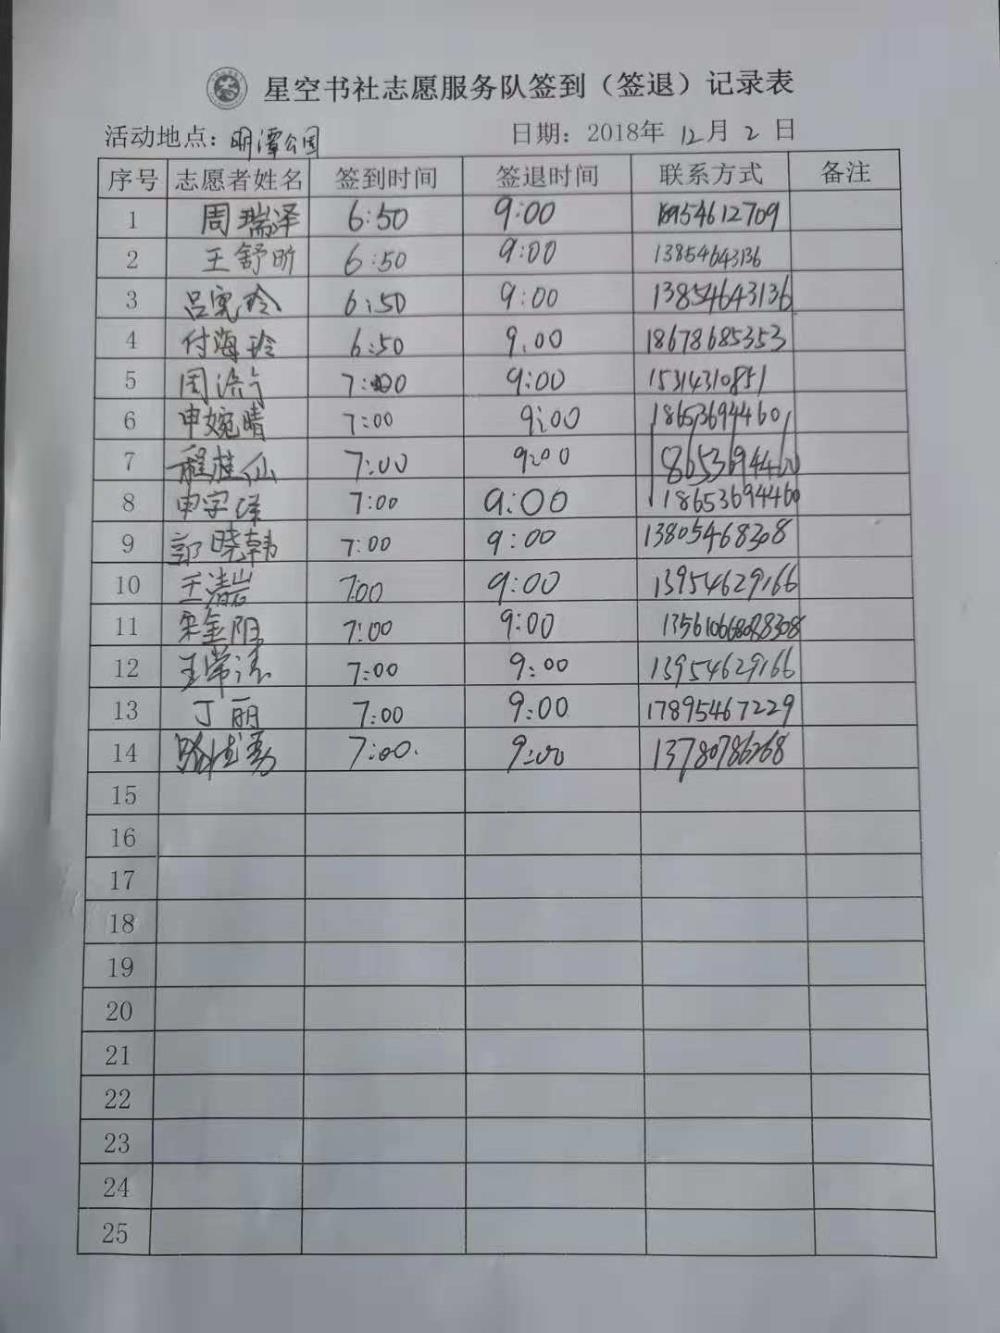 星空书社志愿服务队签到（签退）记录表
活动地点：明潭公园 日期：2018年 12月 2 日
序号 志愿者姓名 签到时间 签退时间 联系方式 备注
1 周瑞泽 6:50 9:00 18954612709
2 王舒昕 6:50 9:00 13854643136
3 吕宪玲 6:50 9:00 13854643136
4 付海玲 6:50 9.00 18678685353
5 周 7:00 9:00 15314310851
6 申婉晴 7:00 9:00 18653694460
7 程桂仙 7:00 9:00 18653694460
8 申宇 7:00 9:00 18653694460
9 郭晓韩 7:00 9:00 13805468308
10 王清岩 7:00 9:00 13954629166
11 宋金阳 7:00 9:00
12 王常清 7:00 9:00 13954629166
13 丁丽 7:00 9:00 17895467229
14 7:00 9:00 13780786268
15
16
17
18
19
20
21
22
23
24
25